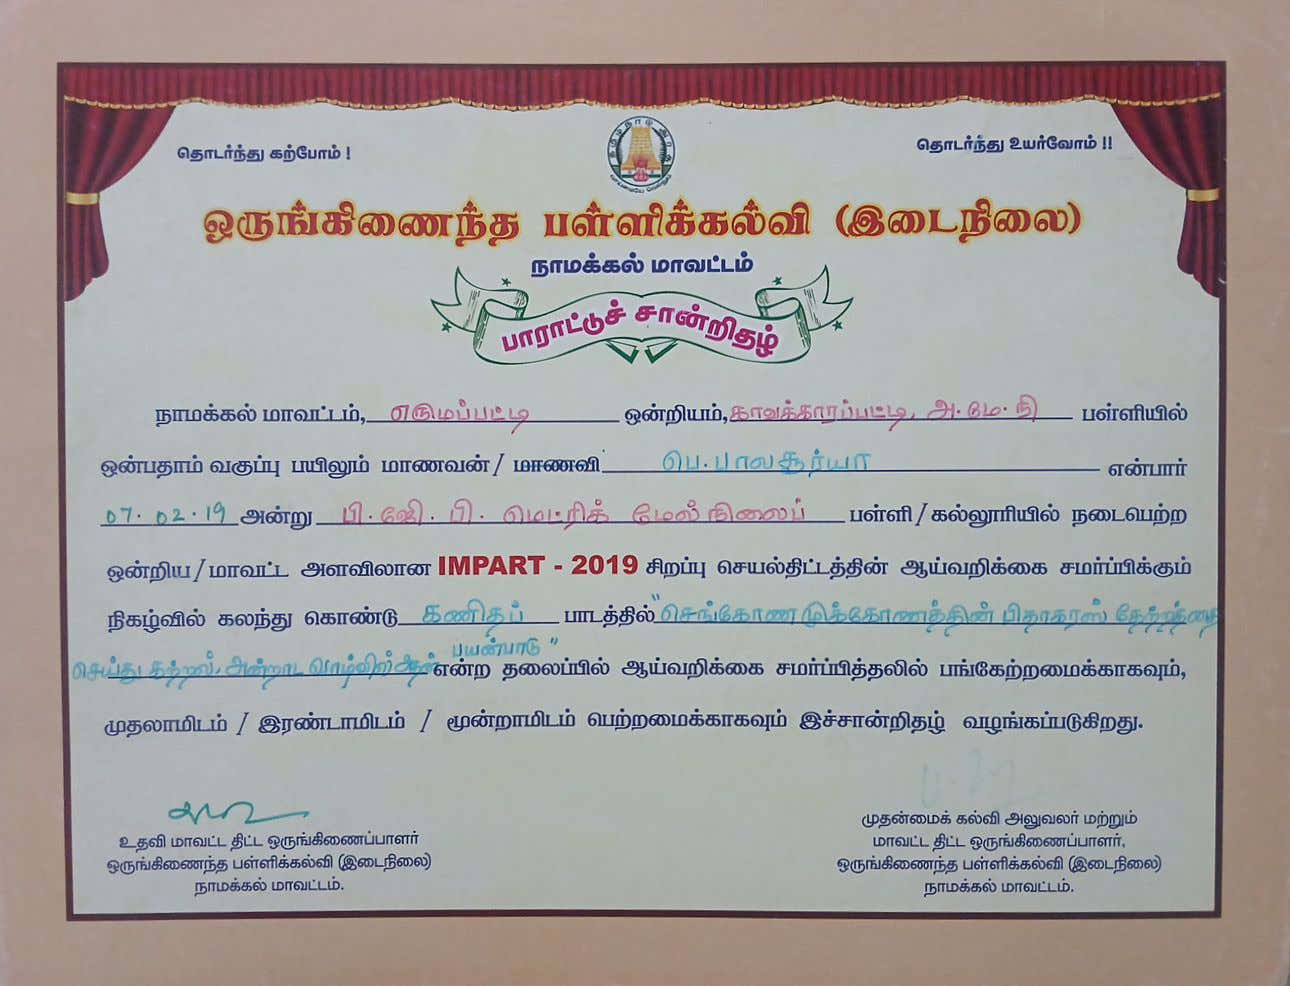 தொடர்ந்து கற்போம் !
தொடர்ந்து உயர்வோம் !!
ஒருங்கிணைந்த பள்ளிக்கல்வி (இடைநிலை)
நாமக்கல் மாவட்டம்
பாராட்டுச் சான்றிதழ்
நாமக்கல் மாவட்டம், எருமப்பட்டி ஒன்றியம், காவக்காரப்பட்டி, அ.மே.நி பள்ளியில்
ஒன்பதாம் வகுப்பு பயிலும் மாணவன் / மாணவி பெ.பாலசூர்யா என்பார்
07.02.19 அன்று பி.ஜி.பி. மெட்ரிக் மேல்நிலைப் பள்ளி / கல்லூரியில் நடைபெற்ற
ஒன்றிய / மாவட்ட அளவிலான IMPART - 2019 சிறப்பு செயல்திட்டத்தின் ஆய்வறிக்கை சமர்ப்பிக்கும்
நிகழ்வில் கலந்து கொண்டு கணிதப் பாடத்தில் "செங்கோண முக்கோணத்தின் பிதாகரஸ் தேற்றத்தை
செய்து கற்றல், அன்றாட வாழ்வில் அதன் பயன்பாடு" என்ற தலைப்பில் ஆய்வறிக்கை சமர்ப்பித்தலில் பங்கேற்றமைக்காகவும்,
முதலாமிடம் / இரண்டாமிடம் / மூன்றாமிடம் பெற்றமைக்காகவும் இச்சான்றிதழ் வழங்கப்படுகிறது.
உதவி மாவட்ட திட்ட ஒருங்கிணைப்பாளர்
ஒருங்கிணைந்த பள்ளிக்கல்வி (இடைநிலை)
நாமக்கல் மாவட்டம்.
முதன்மைக் கல்வி அலுவலர் மற்றும்
மாவட்ட திட்ட ஒருங்கிணைப்பாளர்,
ஒருங்கிணைந்த பள்ளிக்கல்வி (இடைநிலை)
நாமக்கல் மாவட்டம்.